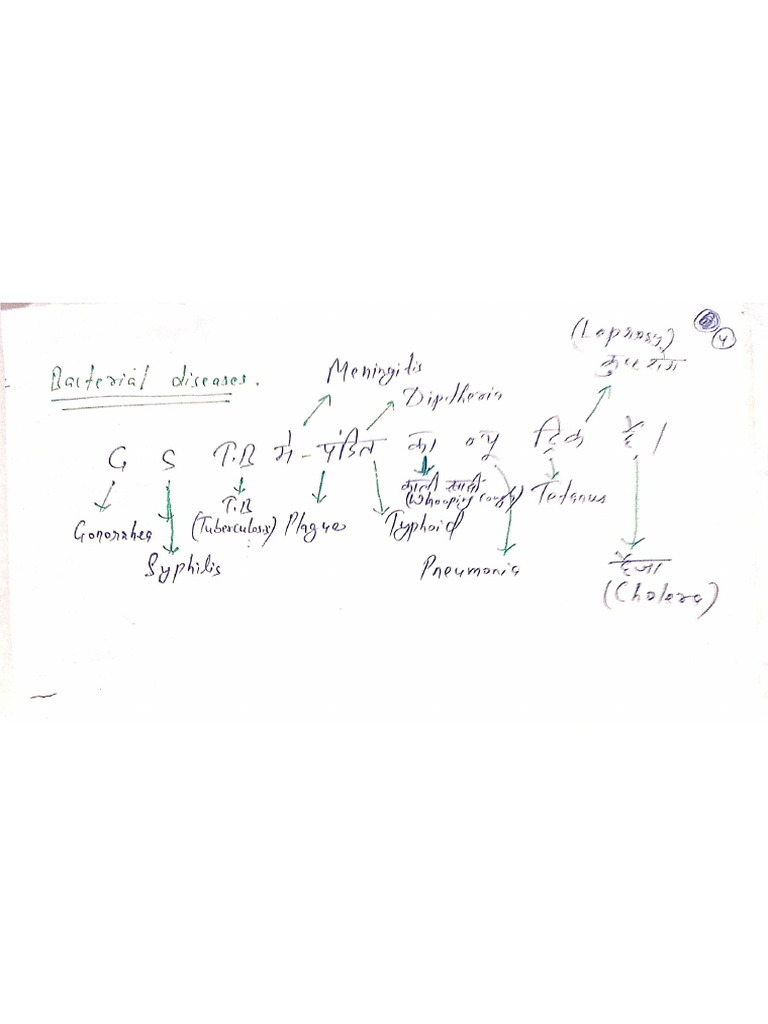 (Leprosy)
4
कुष्ठ रोग
Meningitis
Bacterial diseases.
Dipthoria
G S T.B में - पंडित का न्यू टिक है।
T.B
काली खासी
Gonorrhea
(Tuberculosis)
Plague
Typhoid
(Whooping cough)
Tetanus
Syphilis
Pneumonia
हैजा
(Cholera)